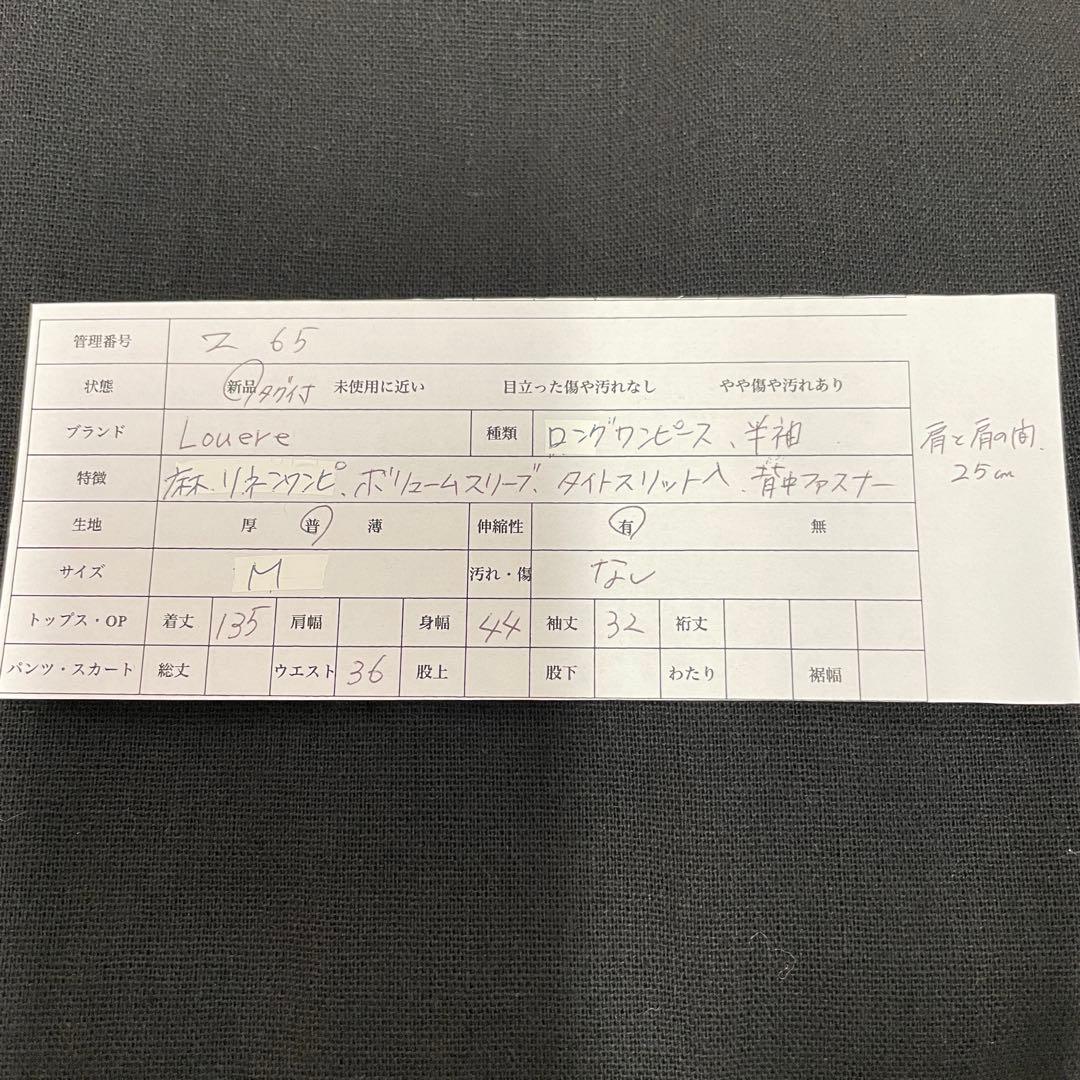 管理番号 Z 65
状態 新品タグ付 未使用に近い 目立った傷や汚れなし やや傷や汚れあり
ブランド Louere 種類 ロングワンピース、半袖
特徴 麻、リネンワンピ、ボリュームスリーブ、タイトスリット入、背中ファスナー
肩と肩の間.
25cm
生地 厚 普 薄 伸縮性 有 無
サイズ M 汚れ・傷 なし
トップス・OP 着丈 135 肩幅 身幅 44 袖丈 32 裄丈
パンツ・スカート 総丈 ウエスト 36 股上 股下 わたり 裾幅